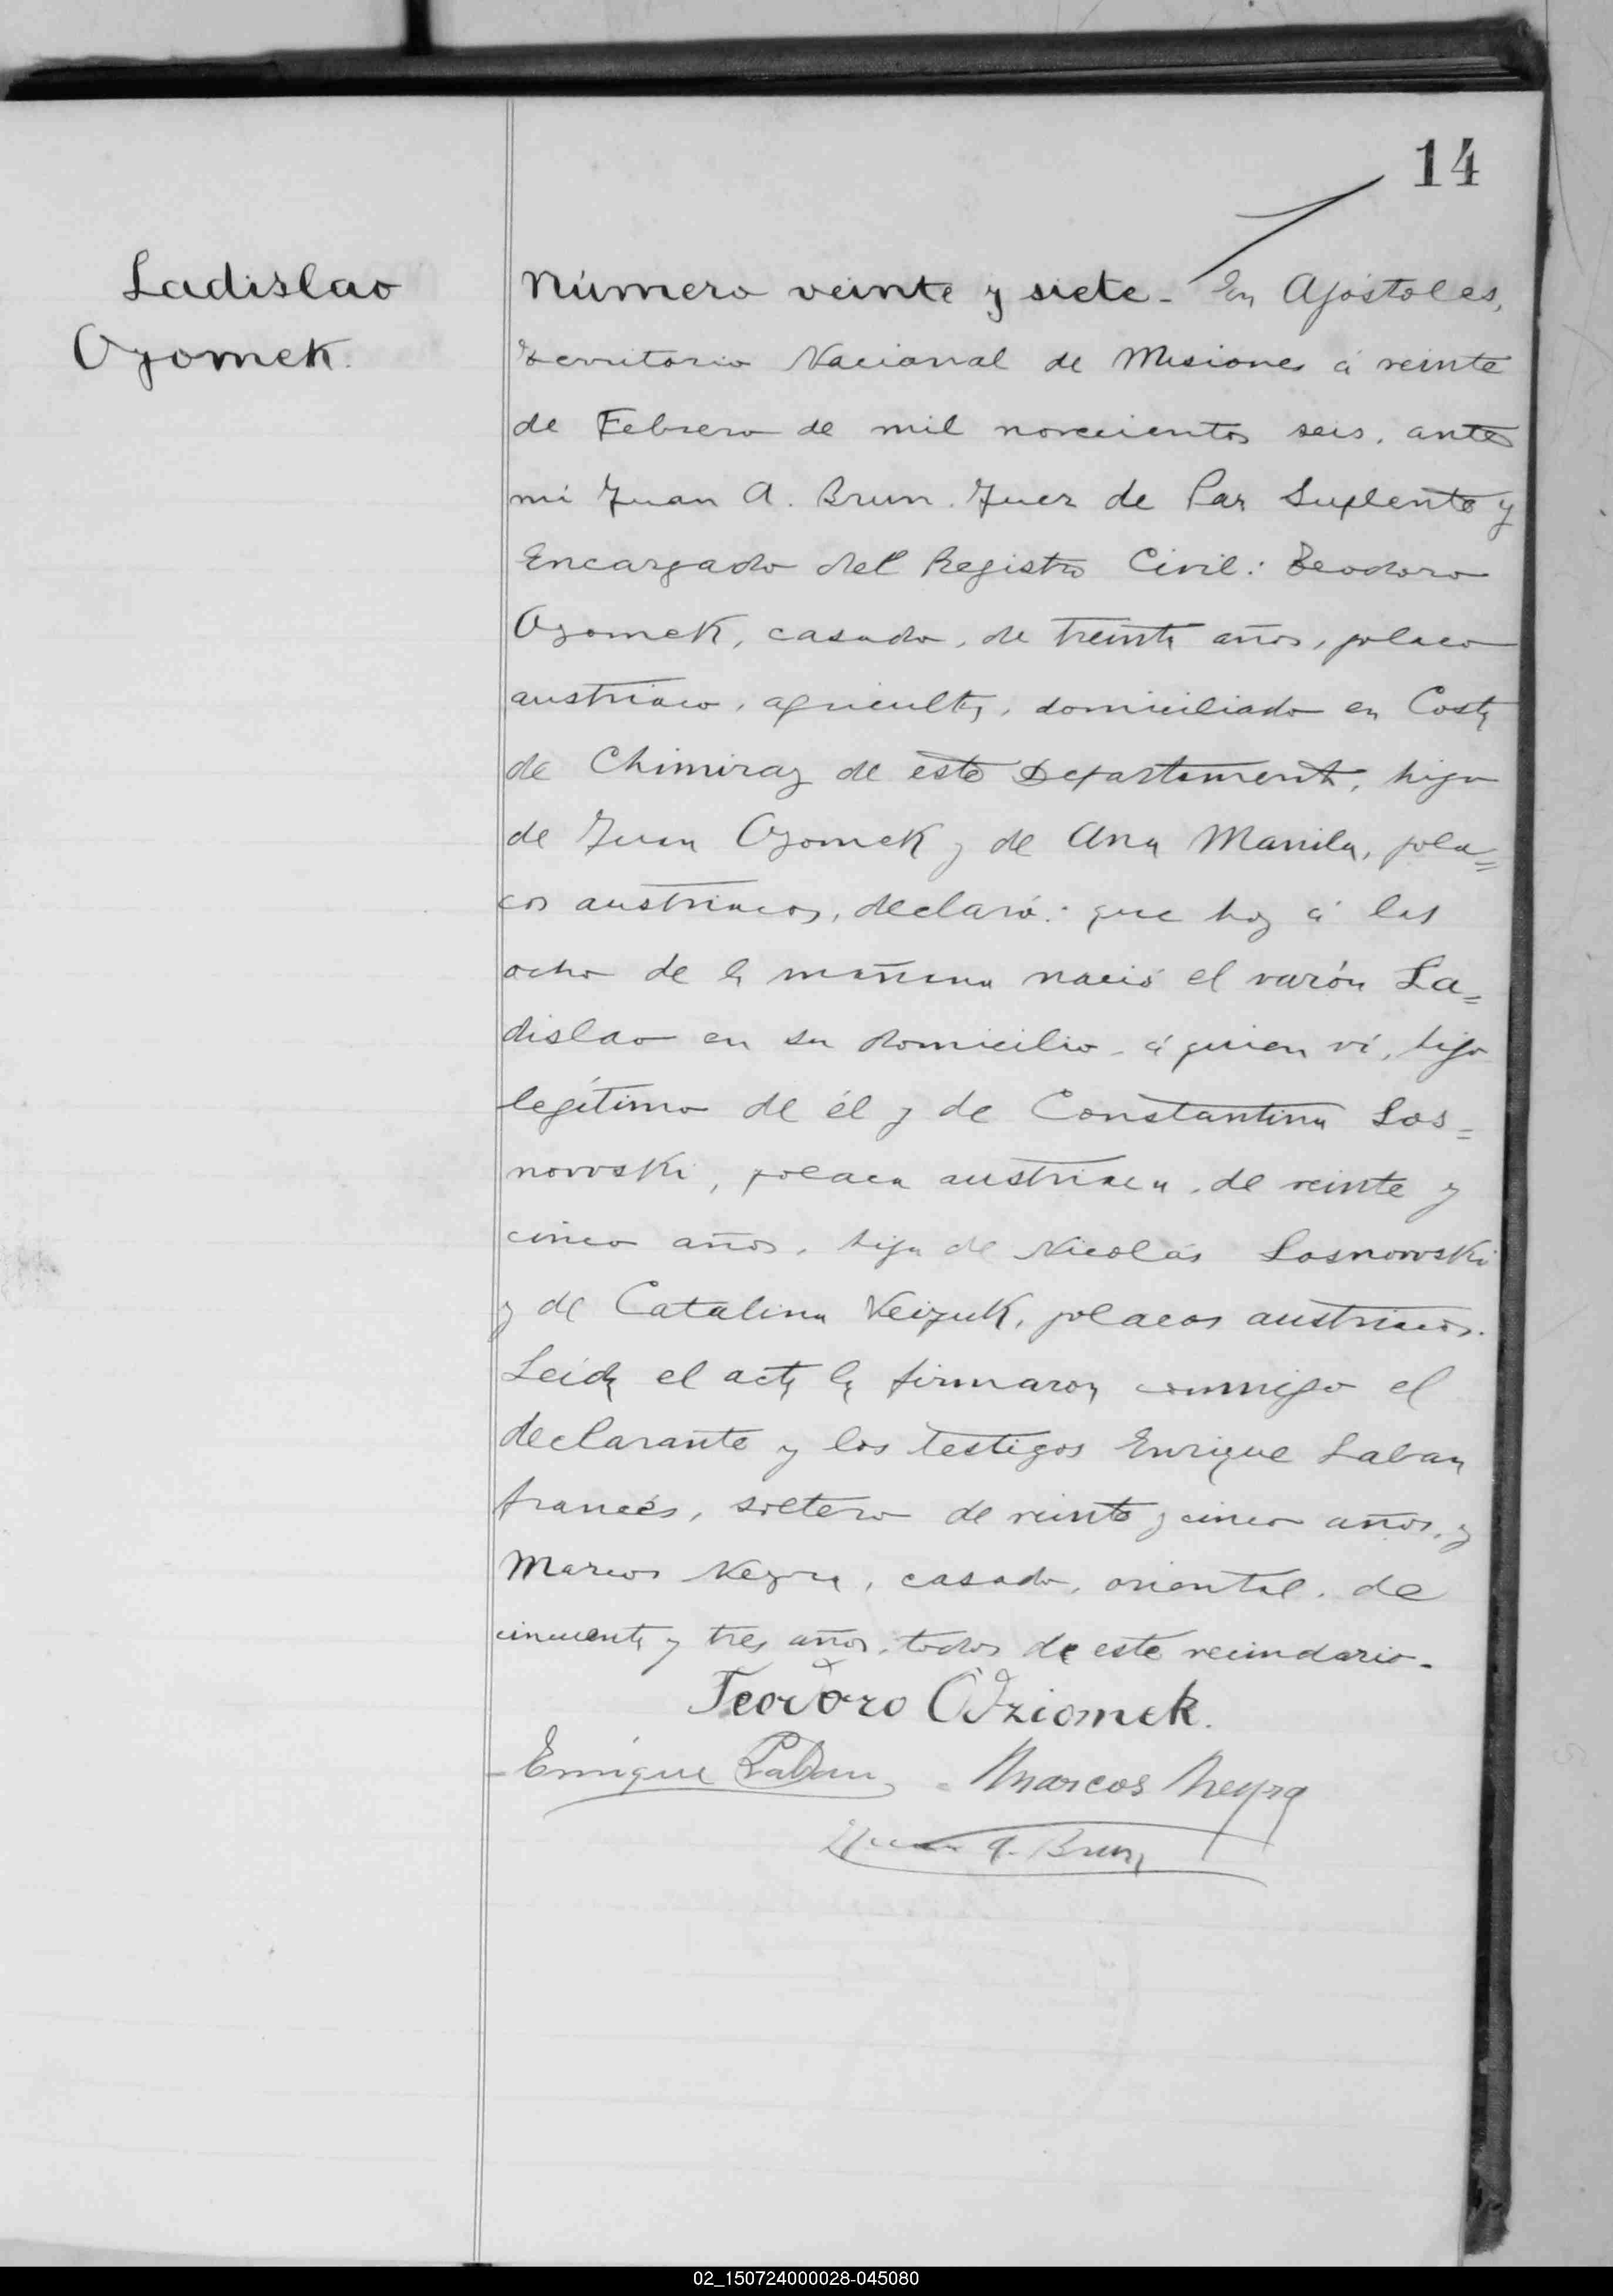 14
Ladislao
Ozomek.
Número veinte y siete - En Apóstoles,
Territorio Nacional de Misiones á veinte
de Febrero de mil novecientos seis, ante
mi Juan A. Brun. Juez de Paz Suplente y
Encargado del Registro Civil: Teodoro
Ozomek, casado, de treinta años, polaco
austriaco, agricultor, domiciliado en Costa
de Chimiray de este Departamento, hijo
de Juan Ozomek y de Ana Manila, pola=
cos austriacos, declaró: que hoy á las
ocho de la mañana nació el varón La=
dislao en su domicilio, á quien ví, hijo
legítimo de él y de Constantina Los=
novoski, polaca austriaca, de veinte y
cinco años, hija de Nicolás Losnovoski
y de Catalina Veizuk, polacos austriacos.
Leida el acta la firmaron conmigo el
declarante y los testigos Enrique Laban
francés, soltero de veinte y cinco años, y
Marcos Neyra, casado, oriental, de
cincuenta y tres años, todos de este vecindario -
Teodoro Odziomek.
Enrique Laban - Marcos Neyra
Juan A. Brun
02_150724000028-045080